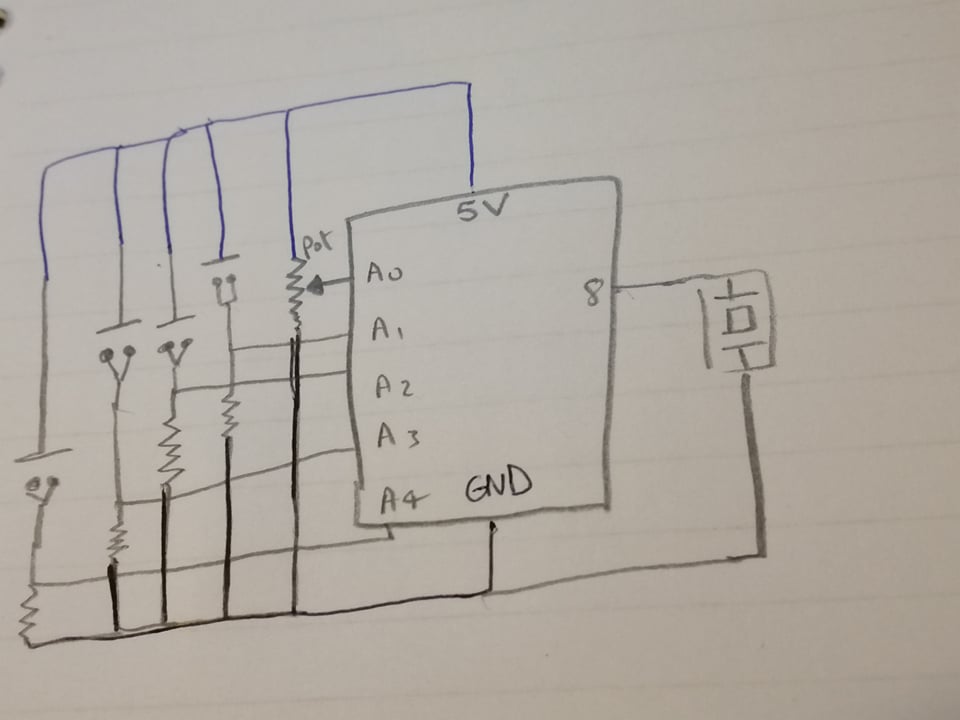 5V
pot
A0
8
A1
A2
A3
A4
GND